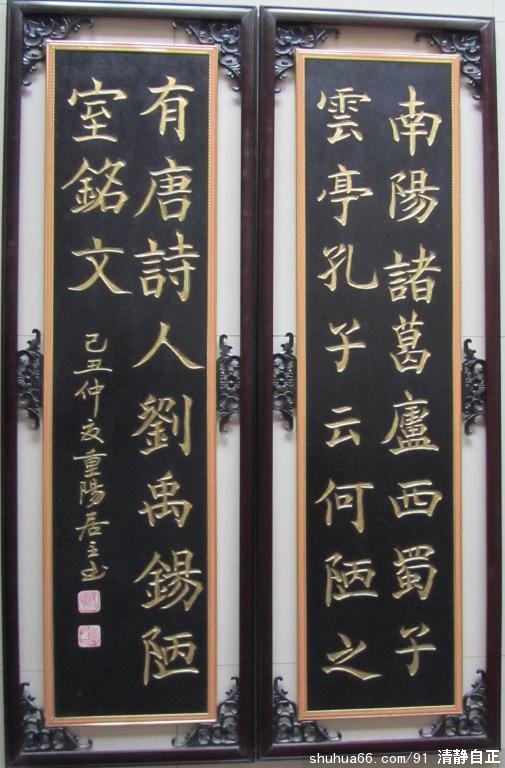 南陽諸葛廬西蜀子
雲亭孔子云何陋之
有唐詩人劉禹錫陋
室銘文
己丑仲夏重陽居主书
shuhua66.com/91 清静自正